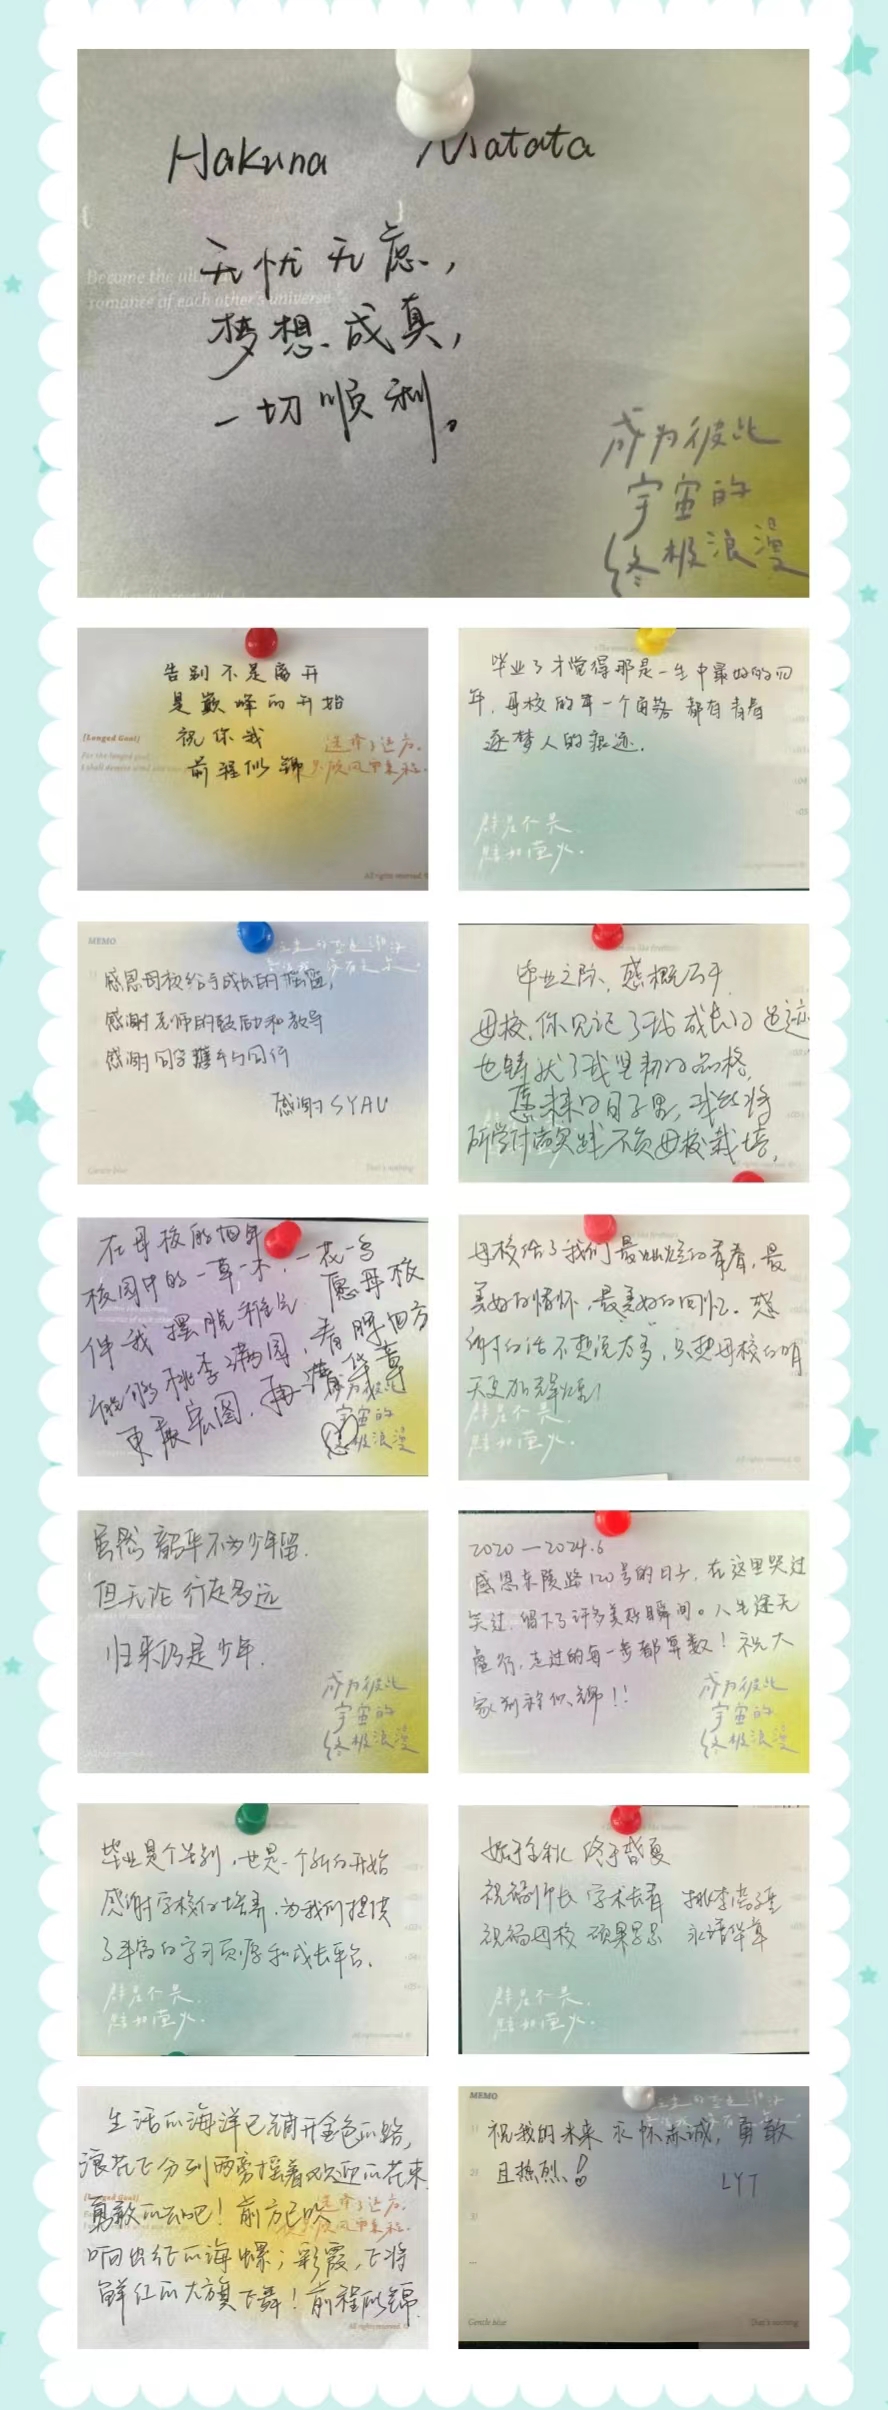 Hakuna Matata
无忧无虑，
梦想成真，
一切顺利。
Become the ultimate
romance of each other's universe
成为彼此
宇宙的
终极浪漫
告别不是离开
是巅峰的开始
祝你我
前程似锦
[Longed Goal]
For the longed goal,
选择了远方，
只顾风雨兼程。
All rights reserved. ©
毕业了才觉得那是一生中最好的四
年，母校的每一个角落都有青春
逐梦人的痕迹.
群星不畏
黯如萤火.
All rights reserved. ©
MEMO
感恩母校给予成长的摇篮,
感谢老师的鼓励和教导
感谢同学携手与同行
感谢SYAU
Gentle blue
That's nothing
毕业之际，感概万千.
母校,你见记了我成长的足迹
也铸状了我坚韧的品格,
愿未来的日子里,我必将
所学付诸实践不负母校栽培,
在母校的四年
校园中的一草一木，一花一鸟
伴我摆脱稚气. 愿母校
能够桃李满园，春晖四方
更展宏图，再谱华章
宇宙的
终极浪漫
母校给了我们最灿烂的青春,最
美好的情怀,最美好的回忆.感
谢的话不想说太多,只想母校的明
天更加辉煌!
群星不畏
黯如萤火.
虽然韶华不为少年留.
但无论行走多远
归来仍是少年.
成为彼此
宇宙的
终极浪漫
2020—2024.6
感恩东陵路120号的日子，在这里哭过
笑过，留下了许多美好瞬间。人生途无
虚行，走过的每一步都算数！祝大
家前程似锦!!
成为彼此
宇宙的
终极浪漫
毕业是个告别，也是一个新的开始
感谢学校的培养，为我们提供
了丰富的学习资源和成长平台.
群星不畏
黯如萤火.
All rights reserved. ©
始于金秋 终于盛夏
祝福师长 学术长青 桃李满
祝福母校 硕果累累 永谱华章
群星不畏
黯如萤火.
All rights reserved. ©
生活的海洋已铺开金色的路,
浪花飞分列两旁摇着欢迎的花束.
勇敢的去吧！前方已吹
响出征的海螺；彩霞,飞将
鲜红的大旗飞舞！前程似锦.
[Longed Goal]
选择了远方，
只顾风雨兼程。
All rights reserved. ©
MEMO
祝我的未来 永怀赤诚，勇敢
且热烈！
LYT
Gentle blue
That's nothing